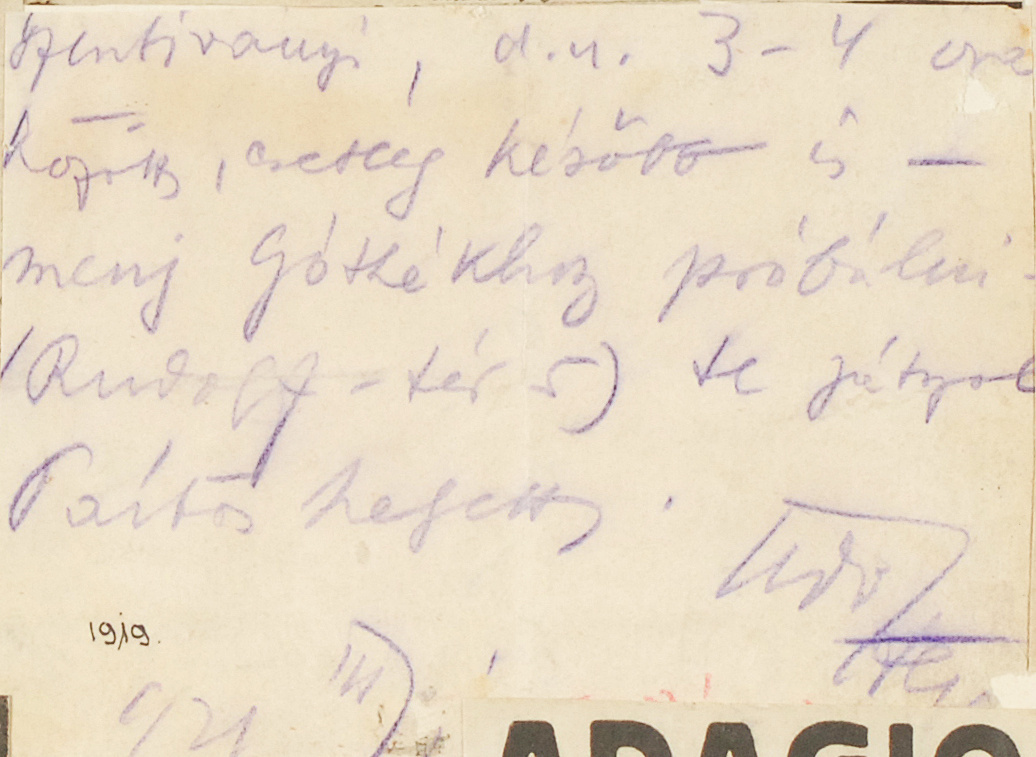 Szentiványi, d.u. 3-4 óra
között, esetleg később is —
menj Góthékhoz próbálni
(Rudolf-tér 5) te játszol
Pártos helyett.
1919.
921 III
ADAGIO